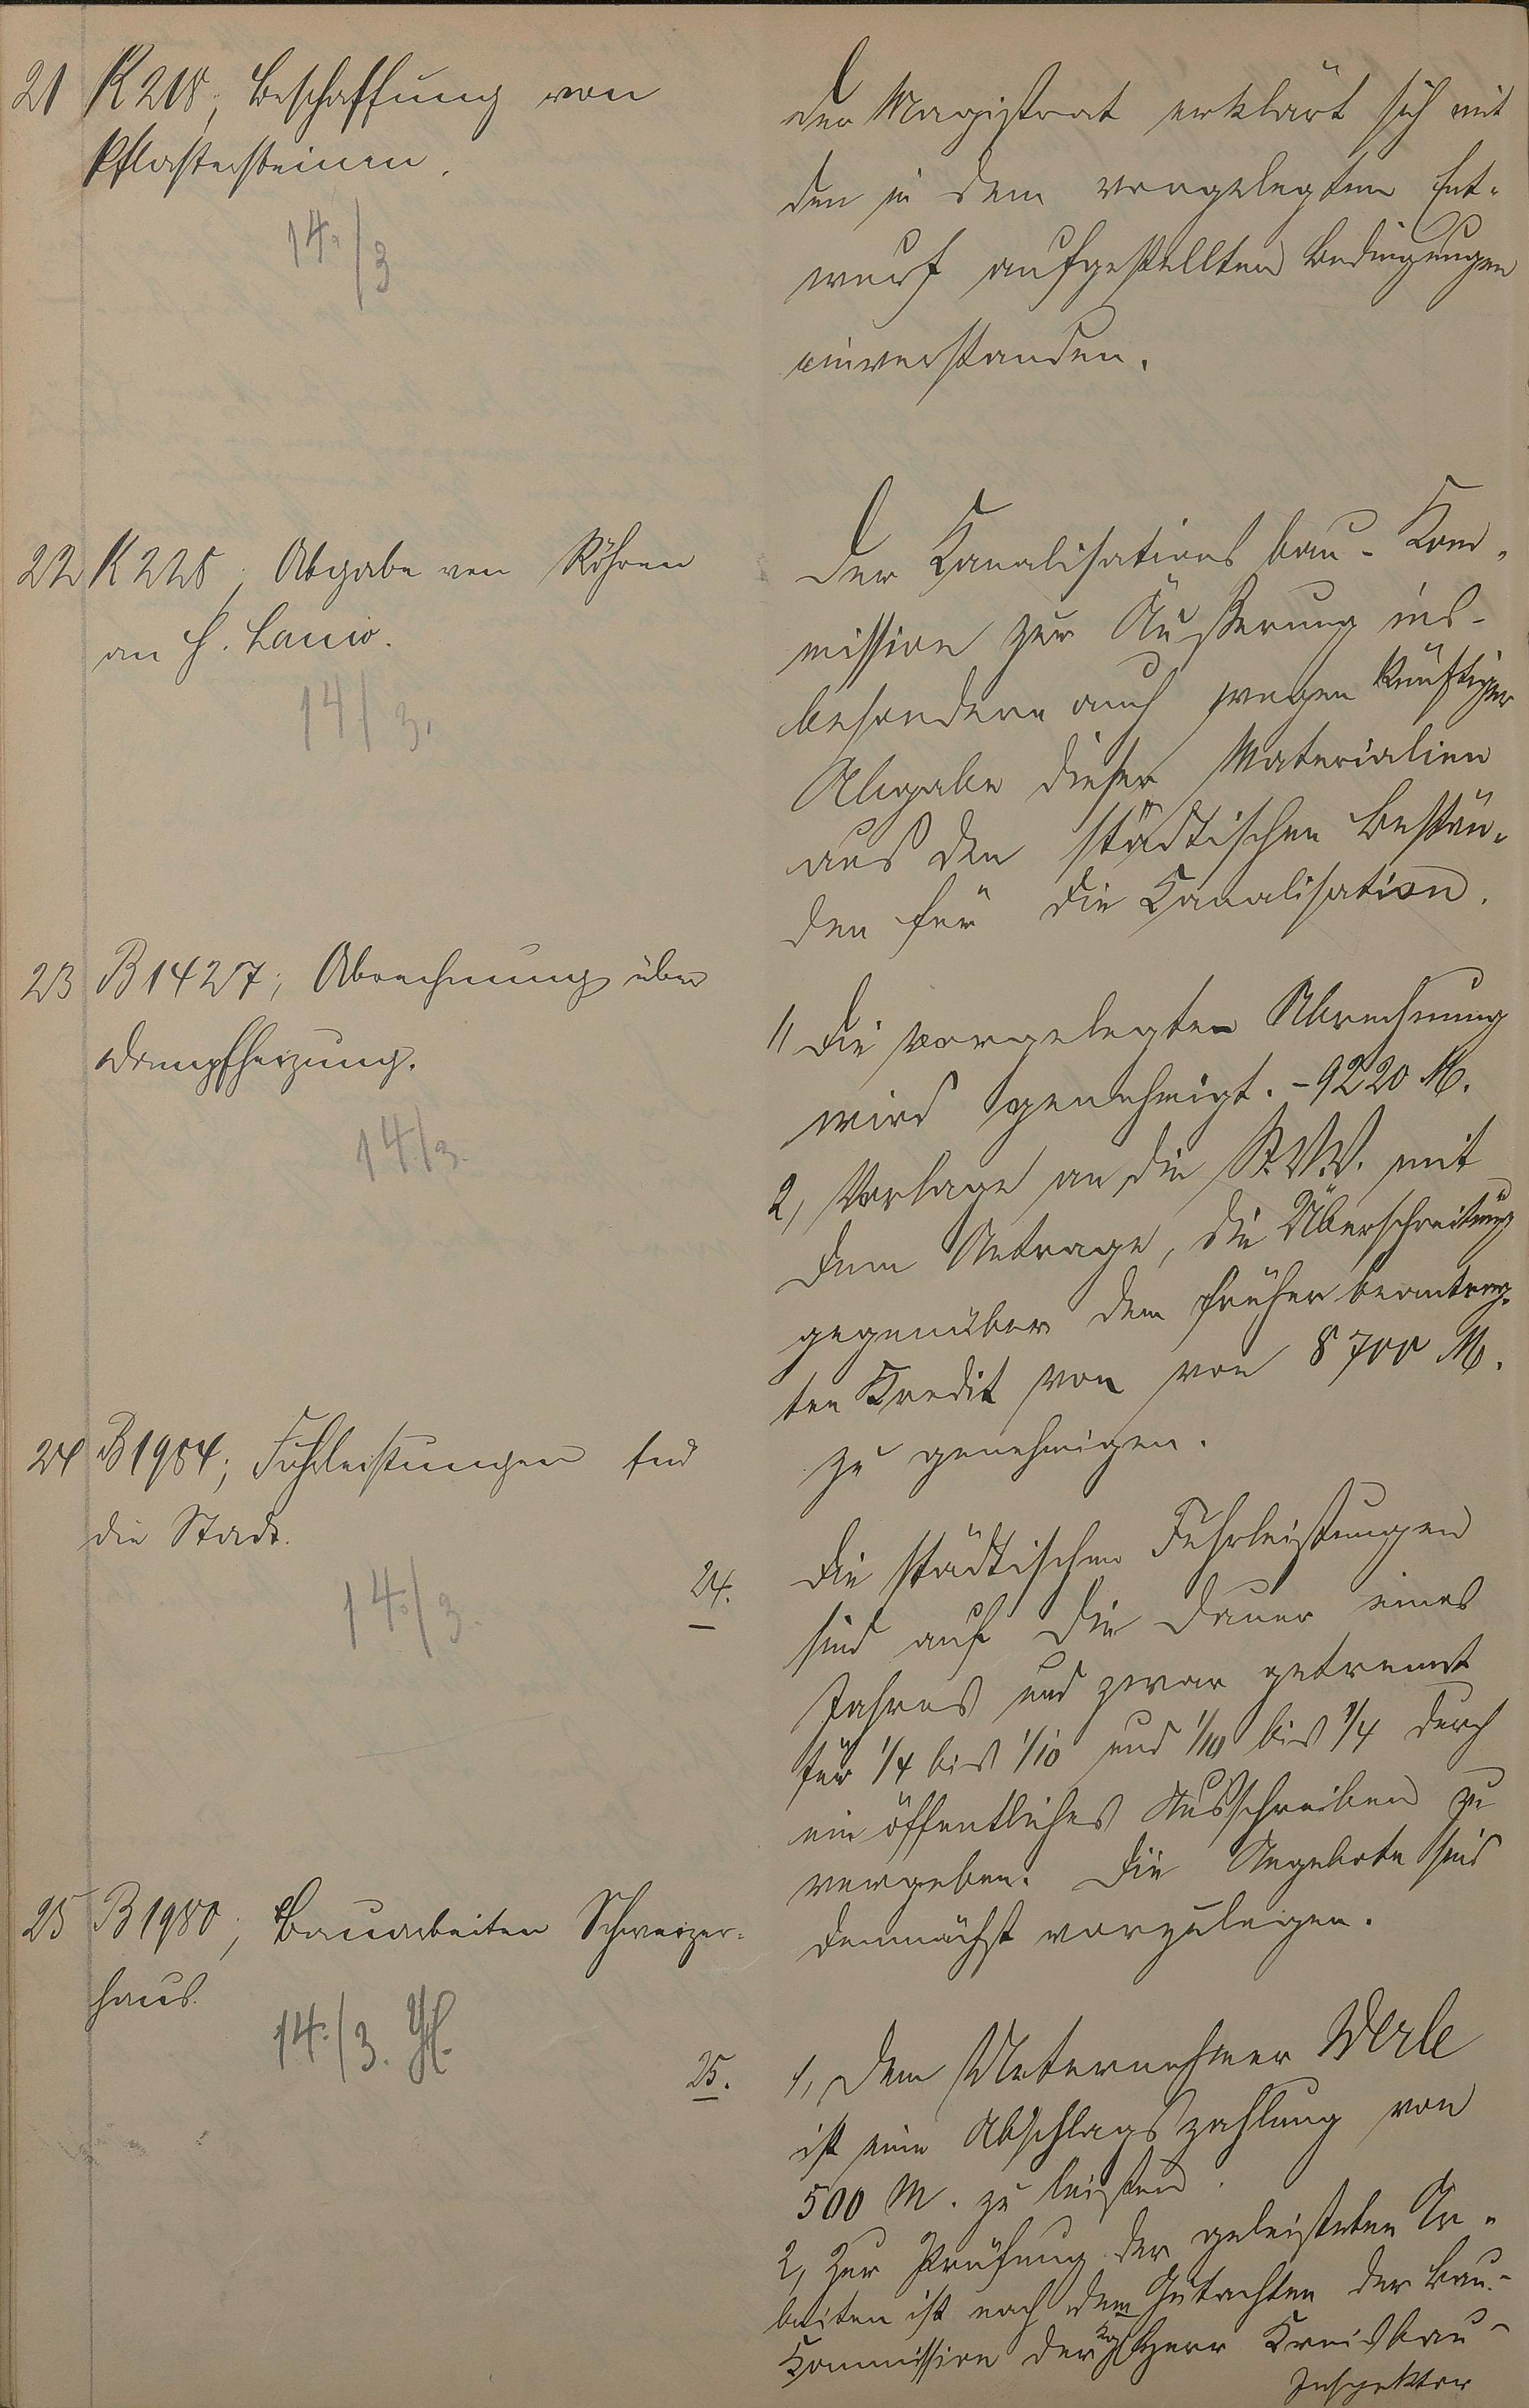 21 K 218, Beschaffung von
Pflastersteinen.
14./3
Der Magistrat erklärt sich mit
den in dem vorgelegten Ent-
wurf aufgestellten Bedingungen
einverstanden.
22 K 228, Abgabe von Röhren
an H. Lanio.
14/3.
Der Kanalisationsbau-Kom-
mission zur Äußerung ins-
besondere auch wegen künftiger
Abgabe dieser Materialien
aus den städtischen Bestän-
den für die Kanalisation.
23 B 1427; Abrechnung über
Dampfheizung.
14/3.
1, Die vorgelegten Abrechnung
wird genehmigt. - 9220 M.
2, Vorlage an die St.V.V. mit
dem Antrage, die Überschreitung
gegenüber dem früher beantrag-
ten Kredit von von 8700 M.
zu genehmigen.
24 B 1984; Fuhrleistungen für
die Stadt.
14./3.
24. Die städtischen Fuhrleistungen
sind auf die Dauer eines
Jahres und zwar getrennt
für 1/4 bis 1/10 und 1/10 bis 1/4 durch
ein öffentliches Ausschreiben zu
vergeben. Die Angebote sind
demnächst vorzulegen.
25 B 1980; Bauarbeiten Schweizer-
haus.
14./3.
25. 1, Dem Unternehmer Werle
ist eine Abschlagszahlung von
500 M. zu leisten.
2, Zur Prüfung der geleisteten Ar-
beiten ist nach dem Gutachten der Bau-
Kommission der Herr Kreisbau-
Inspektor